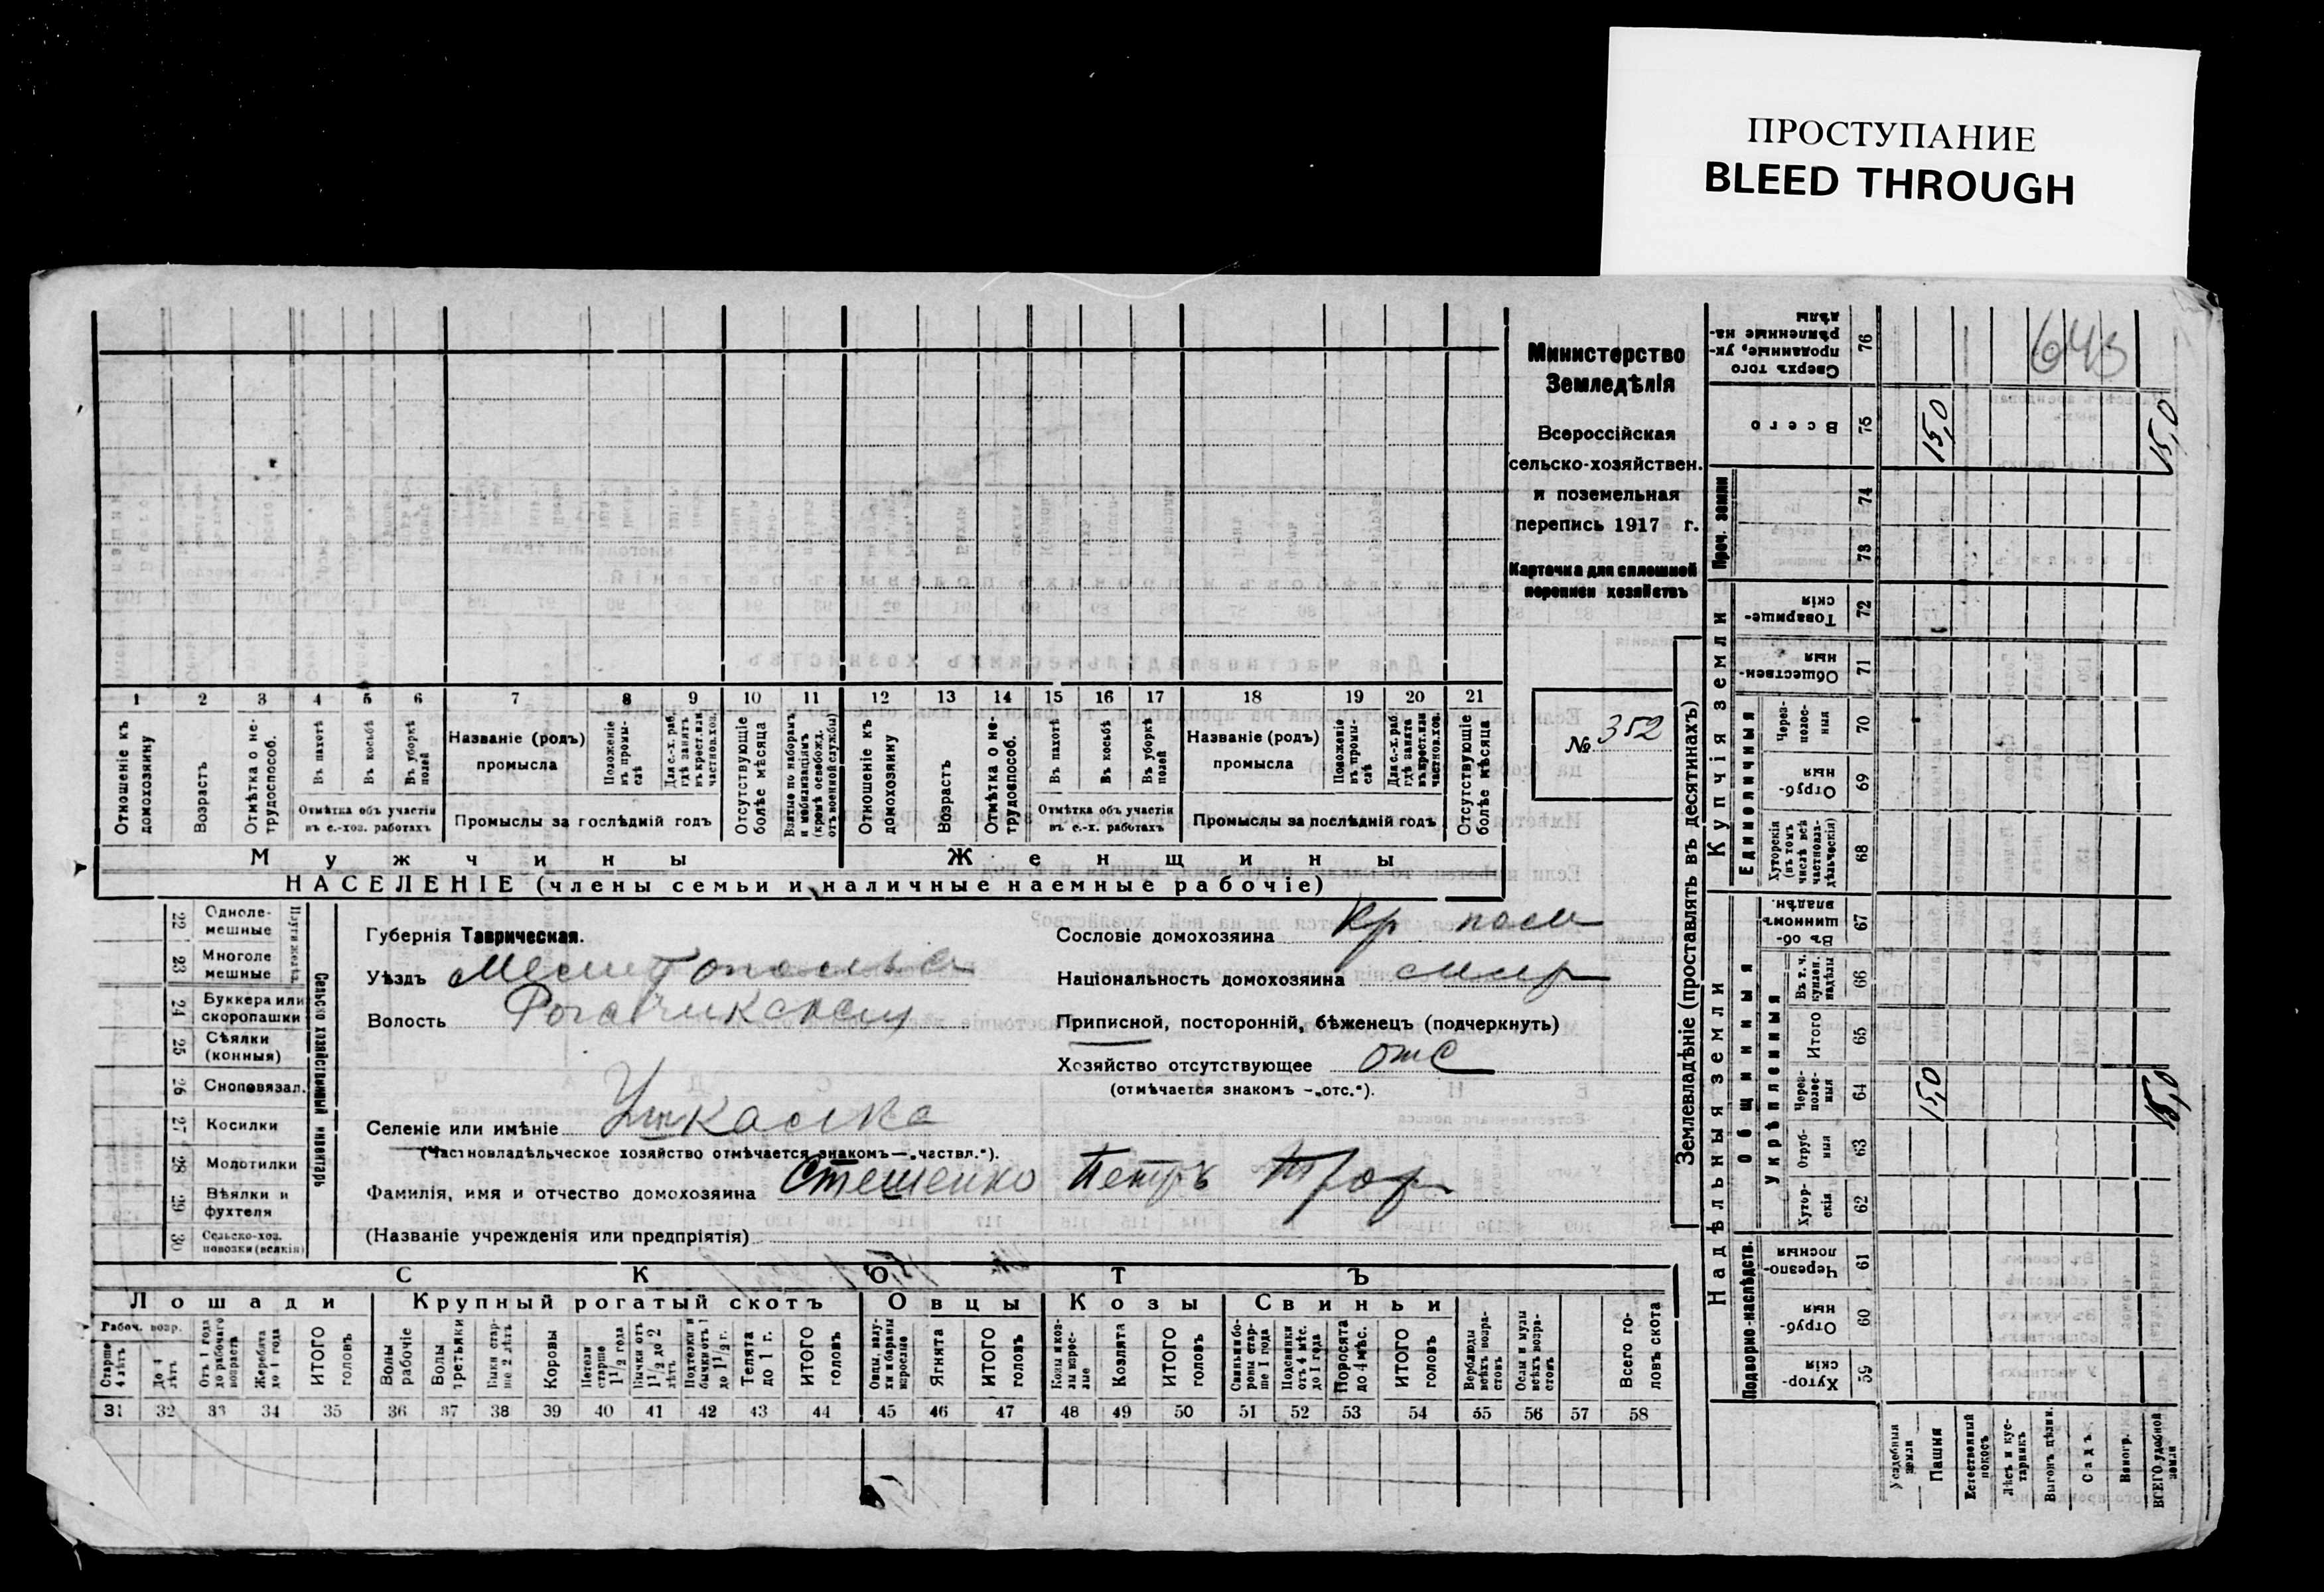 ПРОСТУПАНИЕ
BLEED THROUGH
Министерство
Земледѣлія
Всероссійская
сельско-хозяйствен.
и поземельная
перепись 1917 г.
Карточка для сплошной
переписи хозяйствъ
№ 352
1 2 3 4 5 6 7 8 9 10 11 12 13 14 15 16 17 18 19 20 21
Отношеніе къ домохозяину
Возрастъ
Отмѣтка о не-трудоспособ.
Въ пахотѣ
Въ косьбѣ
Въ уборкѣ полей
Отмѣтка объ участіи въ с.-хоз. работахъ
Названіе (родъ) промысла
Положеніе въ промы-слѣ
Для с.-х. раб. гдѣ занятъ въ крест. или частнов. хоз.
Промыслы за послѣдній годъ
Отсутствующіе болѣе мѣсяца
Взятые по наборамъ и мобилизаціямъ (кромѣ освобожд. отъ военной службы)
Отношеніе къ домохозяину
Возрастъ
Отмѣтка о не-трудоспособ.
Въ пахотѣ
Въ косьбѣ
Въ уборкѣ полей
Отмѣтка объ участіи въ с.-х. работахъ
Названіе (родъ) промысла
Положеніе въ промы-слѣ
Для с.-х. раб. гдѣ занята въ крест. или частнов. хоз.
Промыслы за послѣдній годъ
Отсутствующіе болѣе мѣсяца
Мужчины Женщины
НАСЕЛЕНІЕ (члены семьи и наличные наемные рабочіе)
22 Одноле-мешные
23 Многоле мешные
24 Буккера или скоропашки
25 Сѣялки (конныя)
26 Сноповязал.
27 Косилки
28 Молотилки
29 Вѣялки и фухтеля
30 Сельско-хоз. повозки (всякія)
Сельско хозяйственный инвентарь
Губернія Таврическая.
Уѣздъ
Волость
Селеніе или имѣніе Ушкалка
(Частновладѣльческое хозяйство отмѣчается знакомъ—„частвл.“).
Фамилія, имя и отчество домохозяина Стешенко Петръ
(Названіе учрежденія или предпріятія)
Сословіе домохозяина Кр
Національность домохозяина
Приписной, посторонній, бѣженецъ (подчеркнуть)
Хозяйство отсутствующее отс
(отмѣчается знакомъ –„отс.“).
СКОТЪ
Лошади Крупный рогатый скотъ Овцы Козы Свиньи
Рабоч. возр.
Старше 4 лѣтъ
До 4 лѣтъ
Отъ 1 года до рабочаго возраста
Жеребята до 1 года
ИТОГО головъ
Волы рабочіе
Волы третьяки
Быки стар-ше 2 лѣтъ
Коровы
Нетели старше 1 1/2 года
Бычки отъ 1 1/2 до 2 лѣтъ
Подтелки и бычки отъ 1 до 1 1/2 г.
Телята до 1 г.
ИТОГО головъ
Овцы, валу-хи и бараны взрослые
Ягнята
ИТОГО головъ
Козы и коз-лы взрос-лые
Козлята
ИТОГО головъ
Свиньи и бо-ровы стар-ше 1 года
Подсвинки отъ 4 мѣс. до 1 года
Поросята до 4 мѣс.
ИТОГО головъ
Верблюды всѣхъ возра-стовъ
Ослы и мулы всѣхъ возра-стовъ
Всего го-ловъ скота
31 32 33 34 35 36 37 38 39 40 41 42 43 44 45 46 47 48 49 50 51 52 53 54 55 56 57 58
Землевладѣніе (проставлять въ десятинахъ)
Купчія земли
Надѣльныя земли
Сверхъ того проданные, ук-рѣпленные на-дѣлы 76
Всего 75 15,0 15,0
Проч. земли 74 73
Товарище-скія 72
Обществен-ныя 71
Единоличныя
Через-полос-ныя 70
Отруб-ныя 69
Хуторскія (въ томъ числѣ всѣ частновла-дѣльческія) 68
Общинныя
Въ об-щинномъ владѣн. 67
Укрѣпленныя
Въ т. ч. куплен. надѣлы 66
Итого 65
Через-полос-ныя 64 15,0 15,0
Отруб-ныя 63
Хутор-скія 62
Подворно-наслѣдств.
Черезпо-лосныя 61
Отруб-ныя 60
Хутор-скія 59
Усадебныя земли
Пашня
Естественный покосъ
Лѣсъ и кус-тарникъ
Выгонъ цѣлин.
Садъ
Виногр.
ВСЕГО удобной земли
643